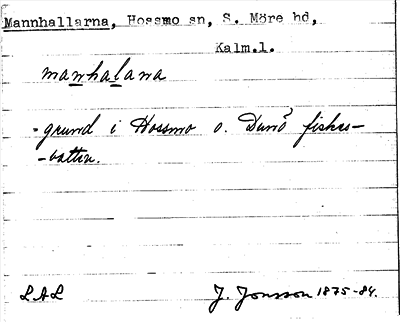 Mannhallarna, Hossmo sn, S. Möre hd,
Kalm.l.
manhalana
-grund i Hossmo o. Dunö fiske-
-vatten.
LAL J. Jonsson 1875-84.